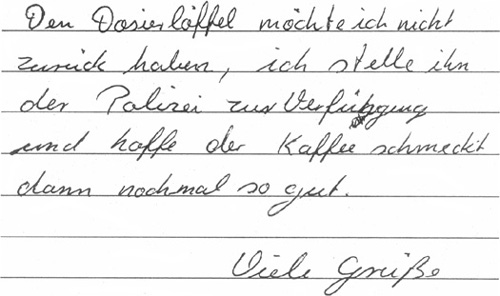 Den Dosierlöffel möchte ich nicht
zurück haben, ich stelle ihn
der Polizei zur Verfühgung
und hoffe der Kaffee schmeckt
dann nochmal so gut.
Viele Grüße